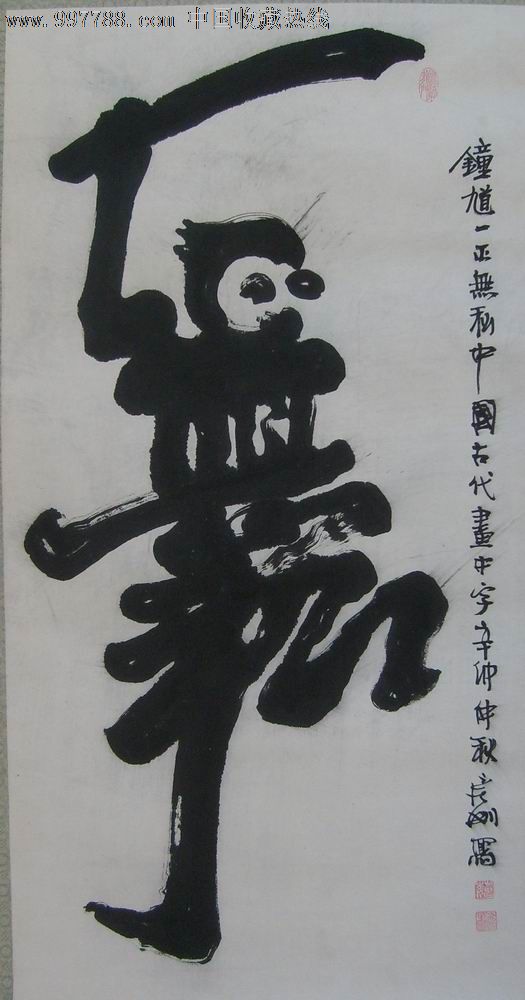 www.997788.com 中国收藏热线
鐘馗一正無私中國古代畫中字辛卯仲秋長剛寫